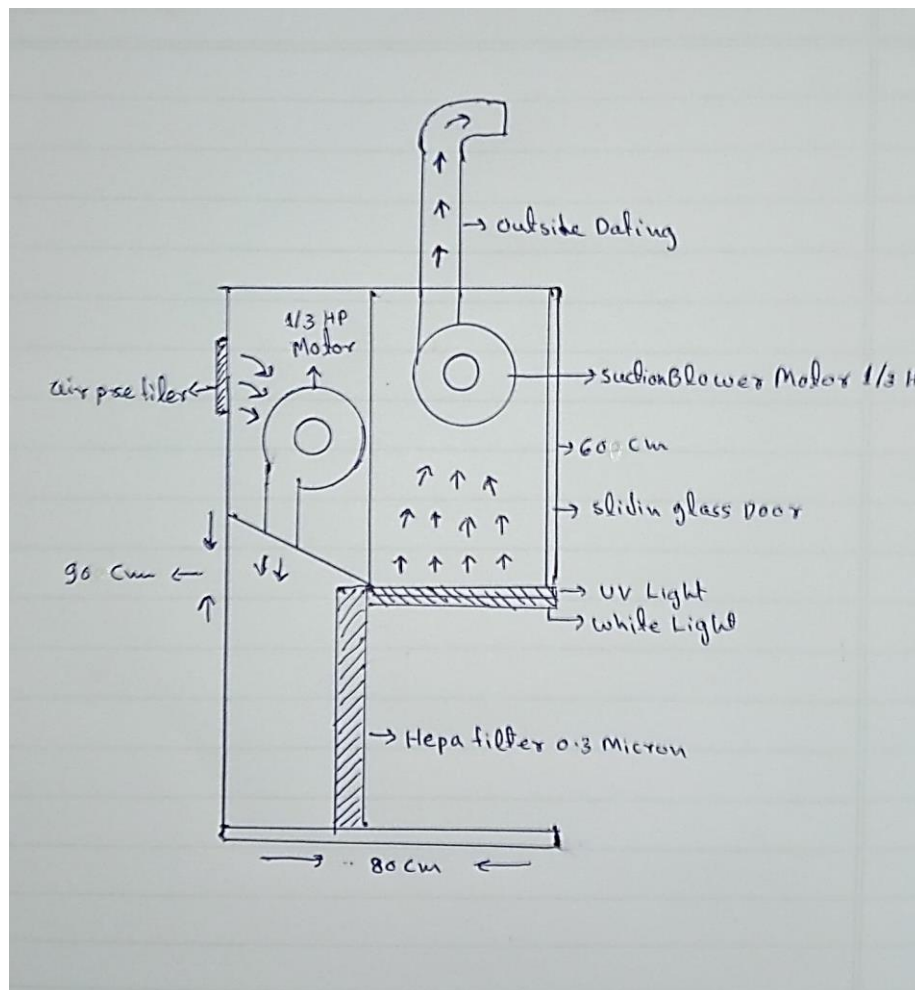 outside Dating
1/3 HP
Motor
air prefiler
suction Blower Motor 1/3 H
60 cm
slidin glass Door
90 cm
UV Light
white Light
Hepa filter 0.3 Micron
80 cm